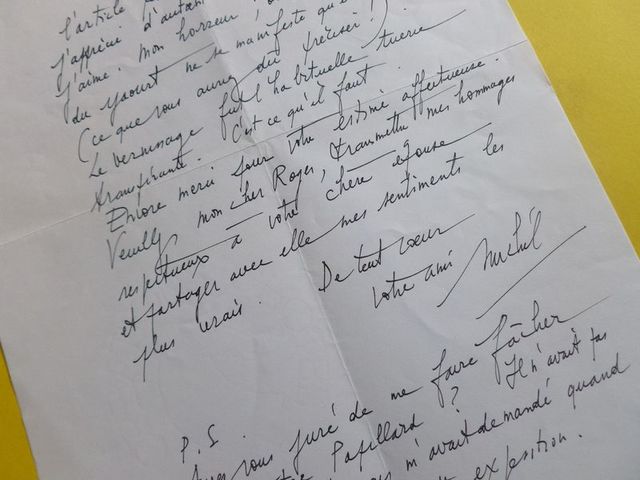 l'article
j'apprécie d'autant
j'aime. Mon horreur,
du yaourt ne se manifeste qu'à
(ce que vous aurez du préciser!).
Le vernissage fut l'habituelle tuerie
transpirante. C'est ce qu'il faut.
Encore merci pour votre estime affectueuse.
Veuillez, mon cher Roger, transmettre mes hommages
respectueux à votre chère épouse
et partager avec elle mes sentiments les
plus vrais.
De tout cœur
votre ami Michel
P.S.
vous juré de me faire fâcher
Papillard ? Il n'avait pas
m'avait demandé quand
exposition.